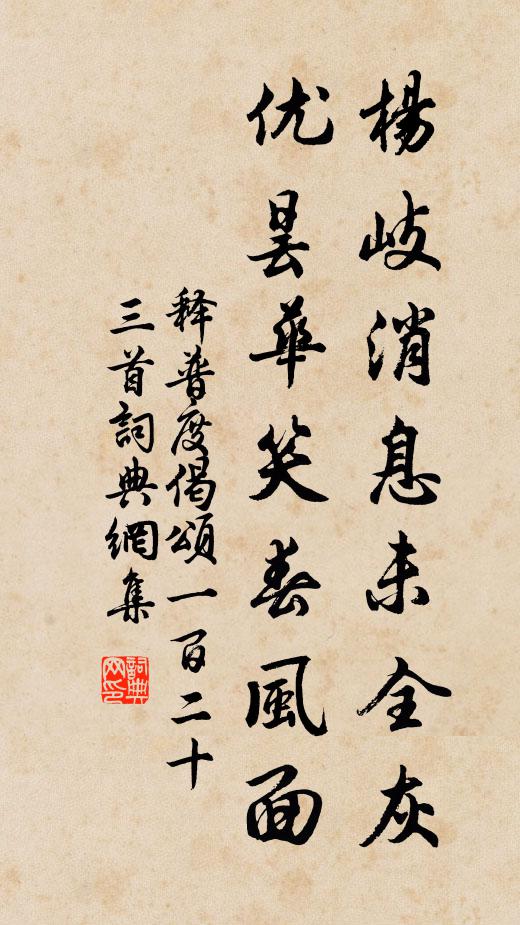 楊岐消息未全灰
优昙華笑春風面
释普度偈頌一百二十
三首詞典網集
詞典
网印